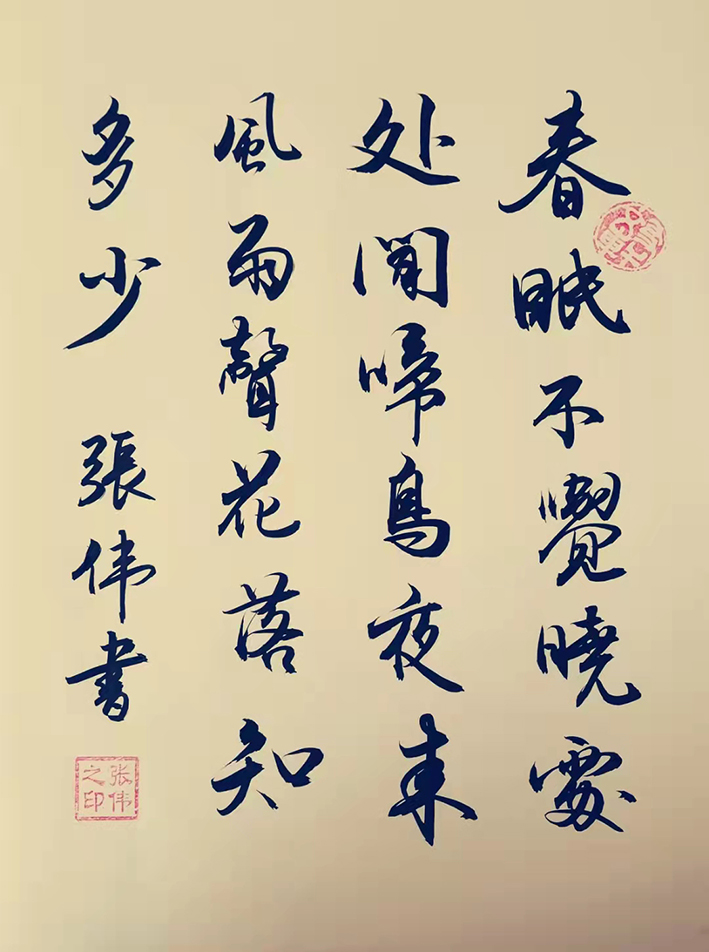 春眠不覺曉處
处聞啼鳥夜来
風雨聲花落知
多少 張伟書
张伟之印